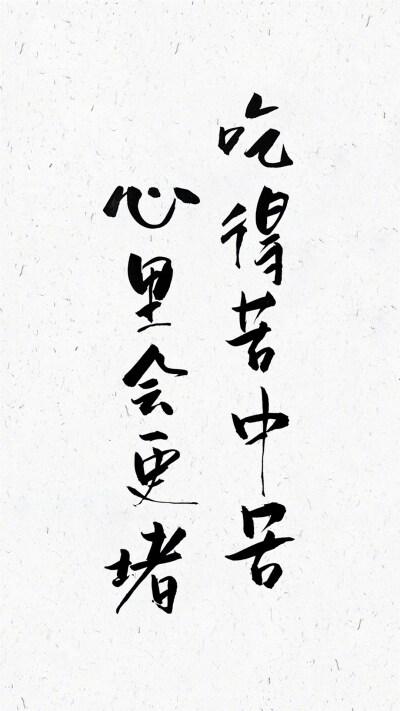 吃得苦中苦
心里会更堵